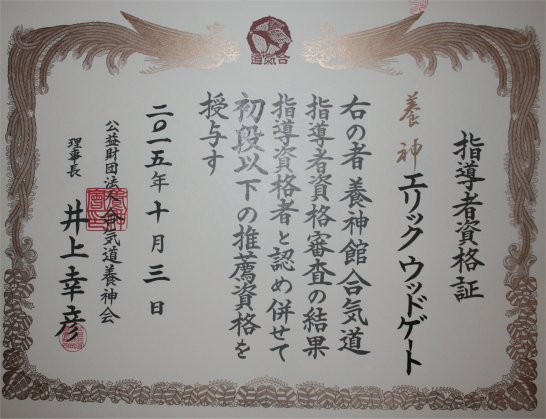 合気道
指導者資格証
養神
エリックウッドゲート
右の者養神館合気道
指導者資格審査の結果
指導資格者と認め併せて
初段以下の推薦資格を
授与す
二〇一五年十月三日
公益財団法人合気道養神会
理事長 井上幸彦